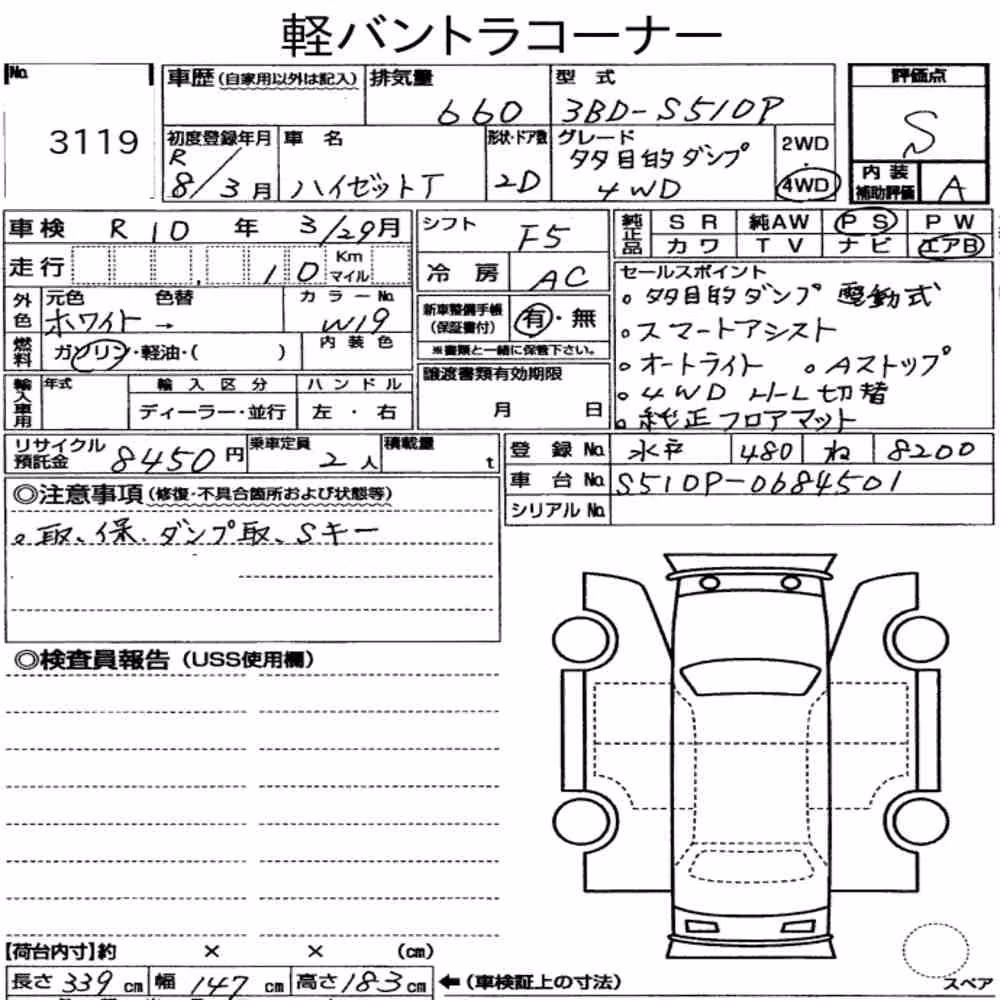 軽バントラコーナー
No. 3119
車歴(自家用以外は記入) 排気量 660 型式 3BD-S510P
評価点 S
初度登録年月 R 8/3月 車名 ハイゼットT 形状・ドア数 2D グレード 多目的ダンプ 4WD 2WD 4WD
内装補助評価 A
車検 R10年 3/29月
シフト F5
純正品 SR 純AW PS PW
カワ TV ナビ エアB
走行 10 Km マイル
冷房 AC
セールスポイント
。多目的ダンプ 電動式
。スマートアシスト
。オートライト 。Aストップ
。4WD H-L切替
。純正フロアマット
外色 元色 ホワイト → 色替 カラーNo. W19
内装色
新車整備手帳(保証書付) 有・無
※書類と一緒に保管下さい。
燃料 ガソリン・軽油・( )
譲渡書類有効期限
月 日
輸入車用 年式 輸入区分 ハンドル
ディーラー・並行 左・右
リサイクル預託金 8450円 乗車定員 2人 積載量 t
登録No. 水戸 480 ね 8200
車台No. S510P-0684501
シリアルNo.
◎注意事項(修復・不具合箇所および状態等)
。取、保、ダンプ取、Sキー
◎検査員報告(USS使用欄)
[荷台内寸]約 × × (cm)
長さ 339 cm 幅 147 cm 高さ 183 cm ←(車検証上の寸法)
スペア